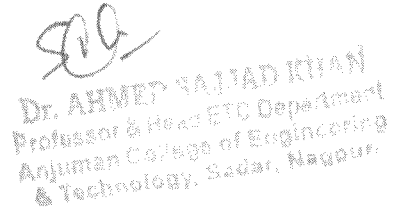 Dr. AHMED SAJJAD KHAN
Professor & Head ETC Department
Anjuman College of Engineering
& Technology, Sadar, Nagpur.